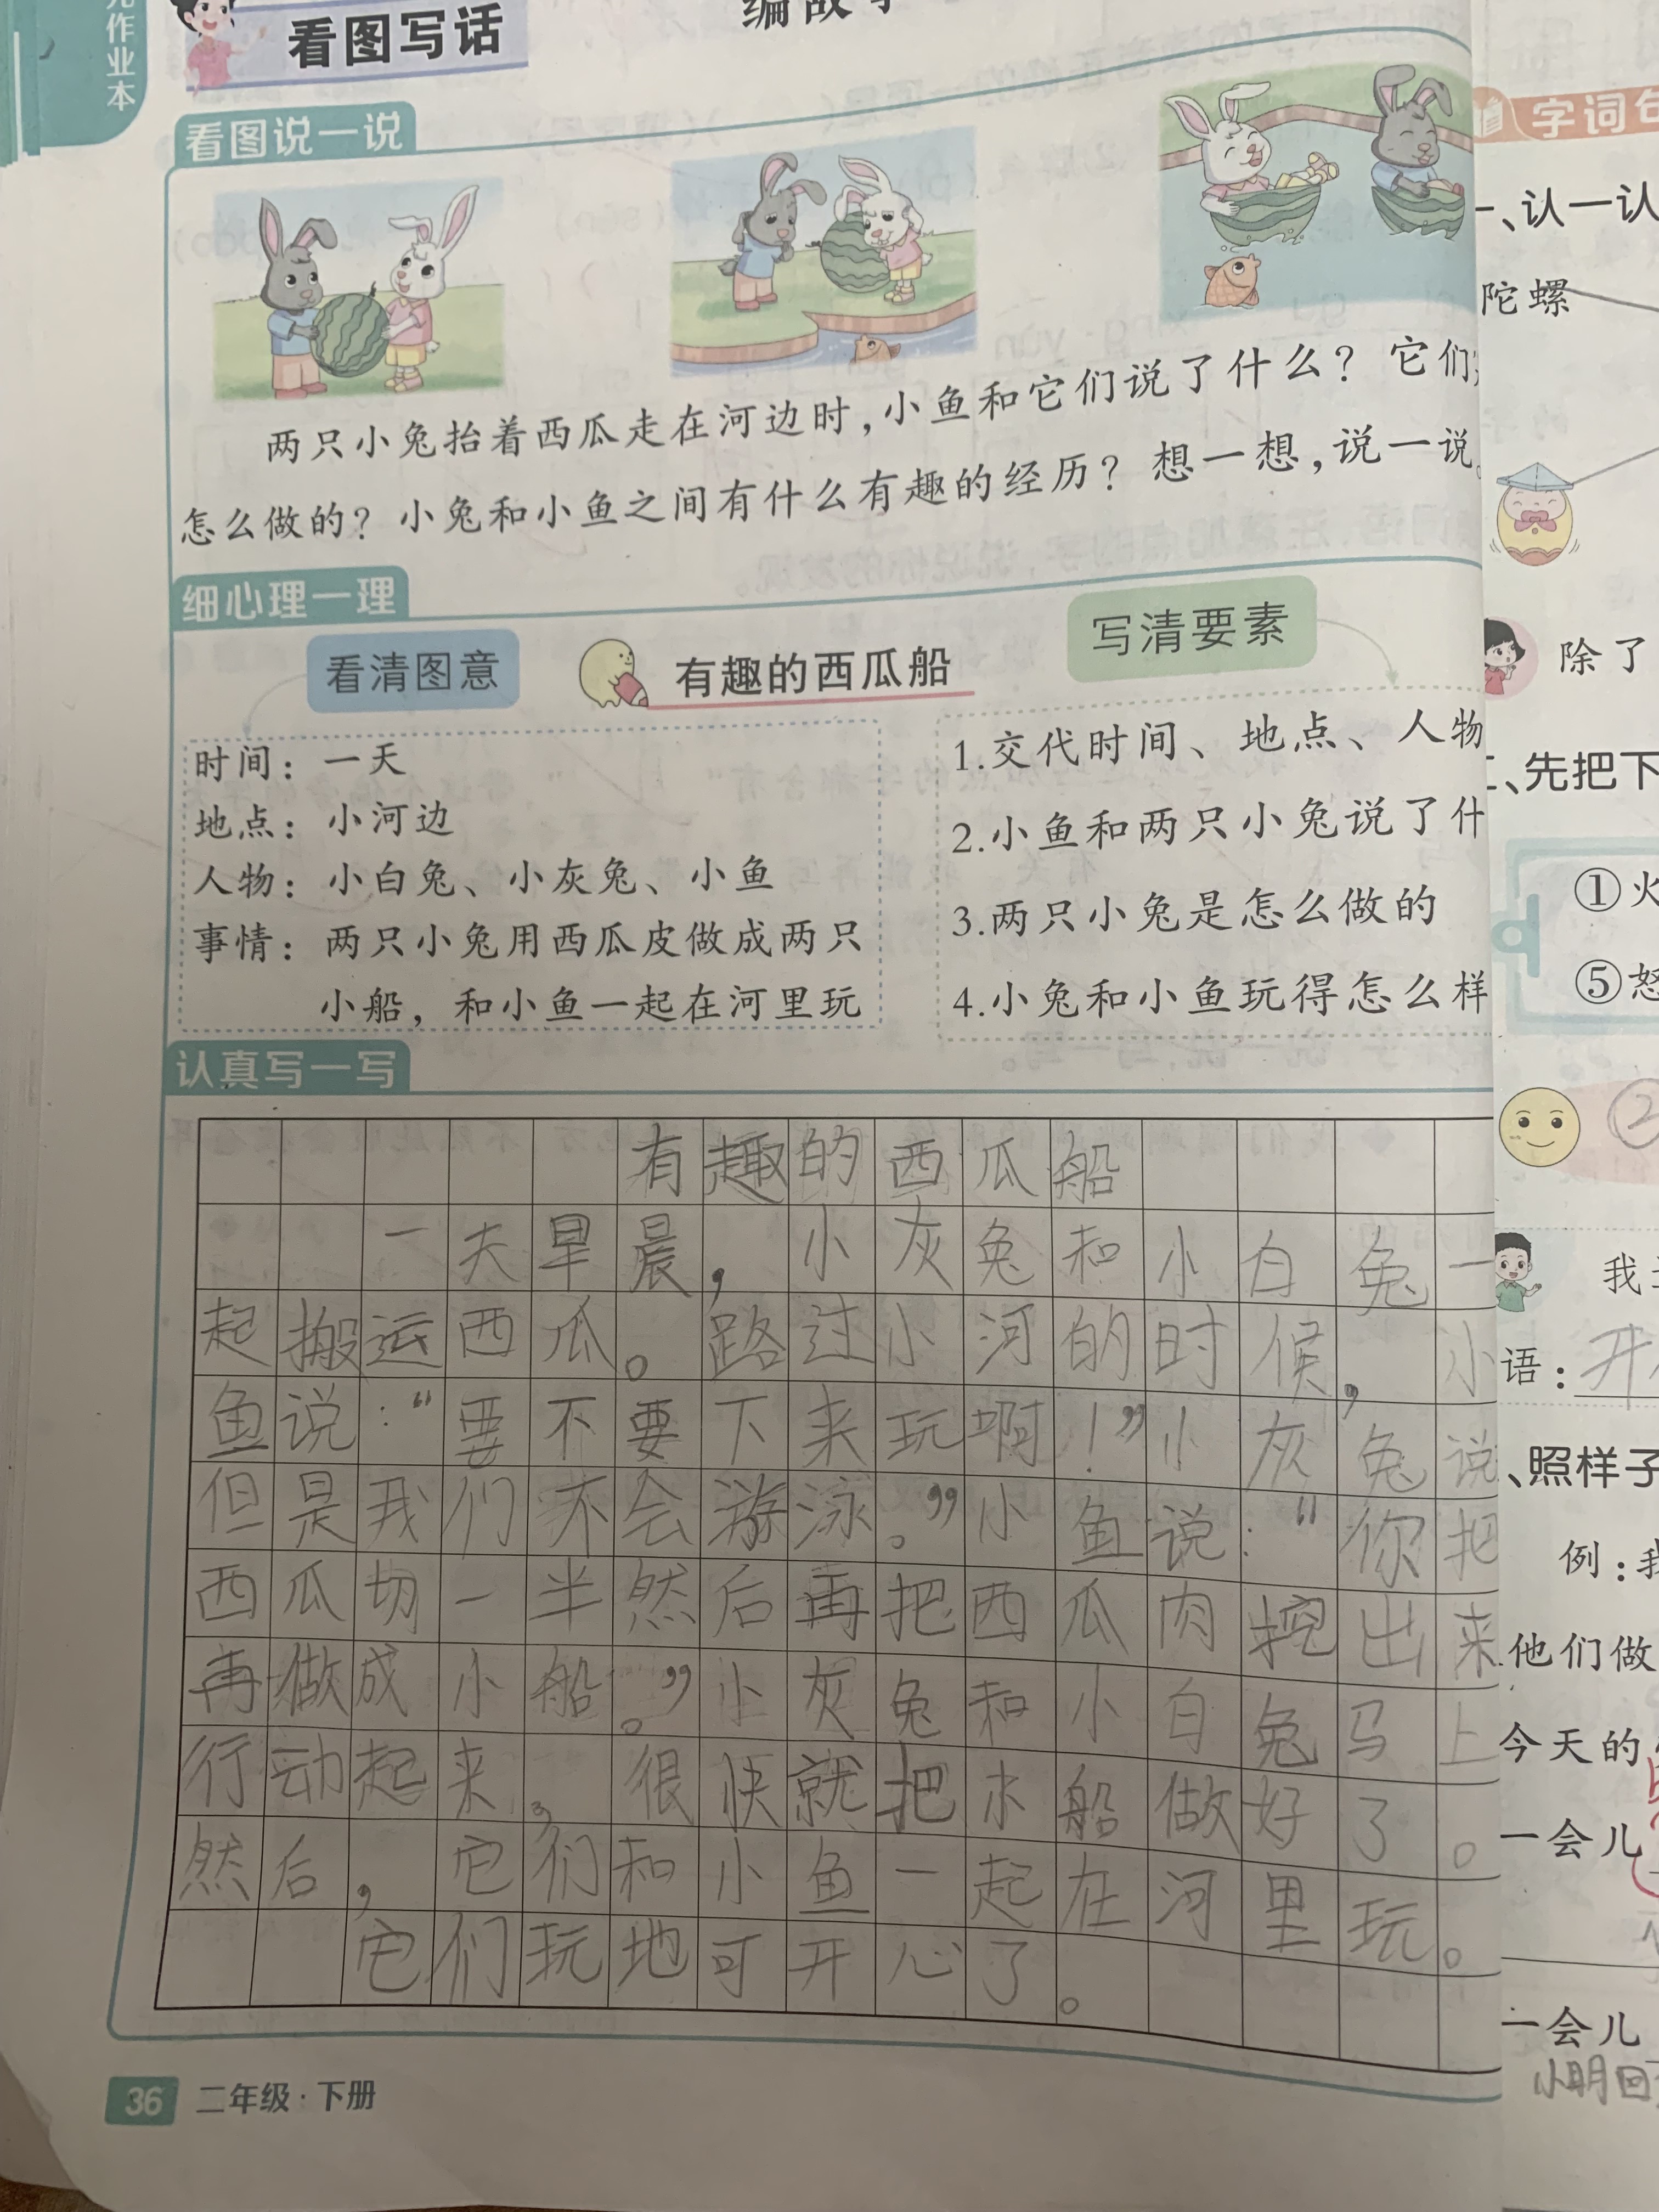 作业本
看图写话
看图说一说
两只小兔抬着西瓜走在河边时，小鱼和它们说了什么？它们
怎么做的？小兔和小鱼之间有什么有趣的经历？想一想，说一说。
细心理一理
看清图意
有趣的西瓜船
写清要素
时间：一天
地点：小河边
人物：小白兔、小灰兔、小鱼
事情：两只小兔用西瓜皮做成两只
小船，和小鱼一起在河里玩
1.交代时间、地点、人物
2.小鱼和两只小兔说了什
3.两只小兔是怎么做的
4.小兔和小鱼玩得怎么样
认真写一写
有趣的西瓜船
一天早晨，小灰兔和小白兔一
起搬运西瓜。路过小河的时候，小
鱼说：“要不要下来玩啊！”小灰兔说
但是我们不会游泳。”小鱼说：“你把
西瓜切一半然后再把西瓜肉挖出来
再做成小船。”小灰兔和小白兔马上
行动起来，很快就把小船做好了。
然后，它们和小鱼一起在河里玩。
它们玩地可开心了。
36 二年级·下册
字词句
一、认一认
陀螺
除了
二、先把下
①火
⑤怒
②
我
语：开
、照样子
例：我
他们做
今天的
一会儿
一会儿
小明回